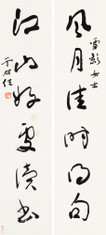 雪影女士
風月佳時得句
江山好處讀書
于右任